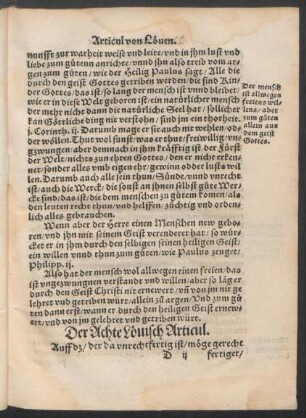 Articul von Löuen.
nunfft zur warheit weise vnd leite/ vnd in jhm lust vnd
liebe zum gůten anrichte/ vnnd jhn also treib vom ar-
gen zum gůten/ wie der Heilig Paulus sagt/ Alle die
durch den geist Gottes getriben werden/ die sind Kin-
der Gottes/ das ist/ so lang der mensch ist vnnd bleibet/
wie er in diese Welt geboren ist/ ein natürlicher mensch
der mehr nicht dann die natürliche Seel hat/ sollicher
kan Görtliche ding nit verstohn/ sind jm ein thorheit.
j. Corinth. ij. Darumb mage er sie auch nit wehlen/ od-
der wöllen. Thut wol sunst was er thut/ freiwillig/ vn-
gezwungen/ aber dennach in jhm kräfftig ist der Fürst
der Welt/ nichts zun ehren Gottes/ den er nicht erken-
net/ sonder alles vmb eigen ehr/ gewinn odder lusts wil-
len. Darumb auch alle sein thun/ Sünde/ vnnd vnrecht
ist/ auch die Werck/ die sonst an jhnen selbst gůte Wer-
cke sind/ das ist/ die den menschen zů gůtem komen/ als
den leuten recht thun/ vnd helffen/ züchtig vnd ordens-
lich alles gebrauchen.
Wenn aber der Herre einen Menschen new gebo-
ren/ vnd jhn mit seinem Geist verenderet hat/ so wür-
cket er in jhm durch den selbigen seinen heiligen Geist/
ein willen vnnd thun zum gůten/ wie Paulus zeuget/
Philipp. ij.
Also hat der mensch wol allwegen einen freien/ das
ist vngezwungnen verstande vnd willen/ aber so läg er
durch den Geist Christi nit ernewert/ vnd von jm nit ge-
leret vnd getriben würt/ allein zů argen/ Vnd zum gů-
ten dann erst/ wann er durch den heiligen Geist ernew-
ert/ vnd von jm gelehret vnd getriben würt.
Der mensch
ist allwegen
freiens wil-
lens/ aber
zum gůten
allein auß
dem geist
Gottes.
Der Achte Löuisch Articul.
Auff dz/ der da vnrechtfertig ist/ möge gerecht
D ij fertiget/